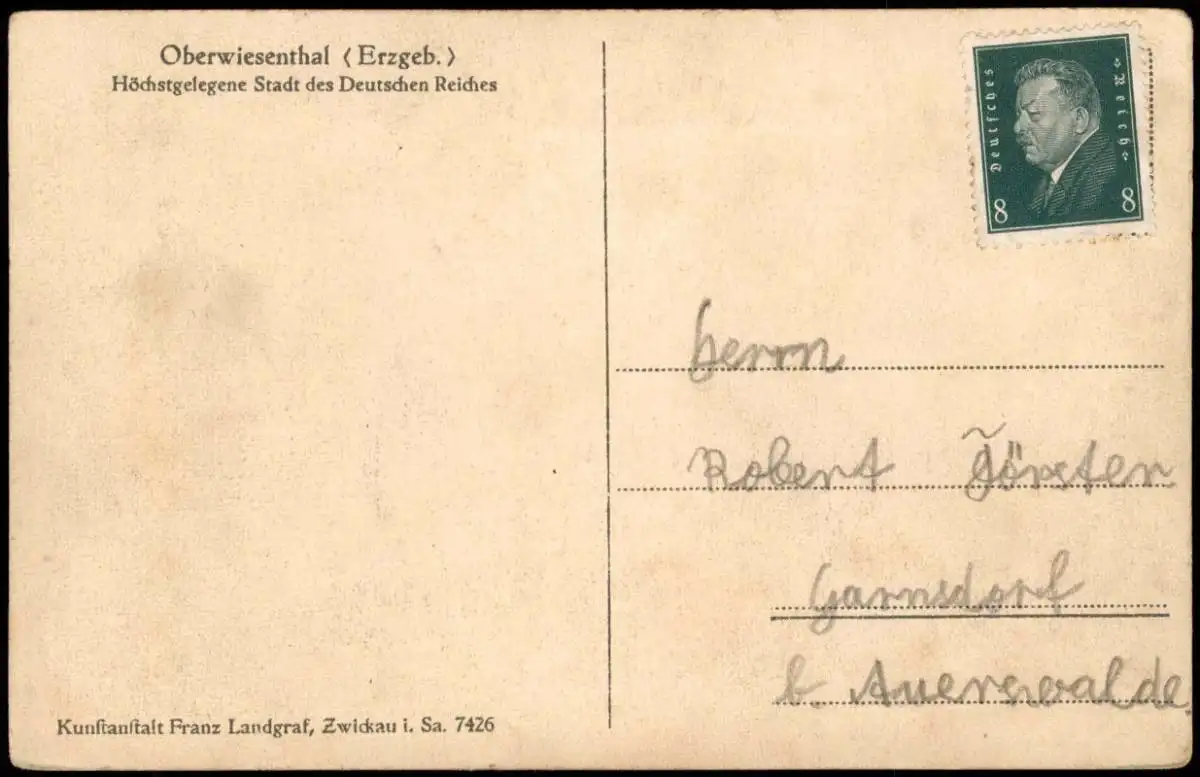 Oberwiesenthal (Erzgeb.)
Höchstgelegene Stadt des Deutschen Reiches
Deutsches
Reich
8
8
Herrn
Robert Förster
Garnsdorf
b. Auerswalde
Kunſtanſtalt Franz Landgraf, Zwickau i. Sa. 7426